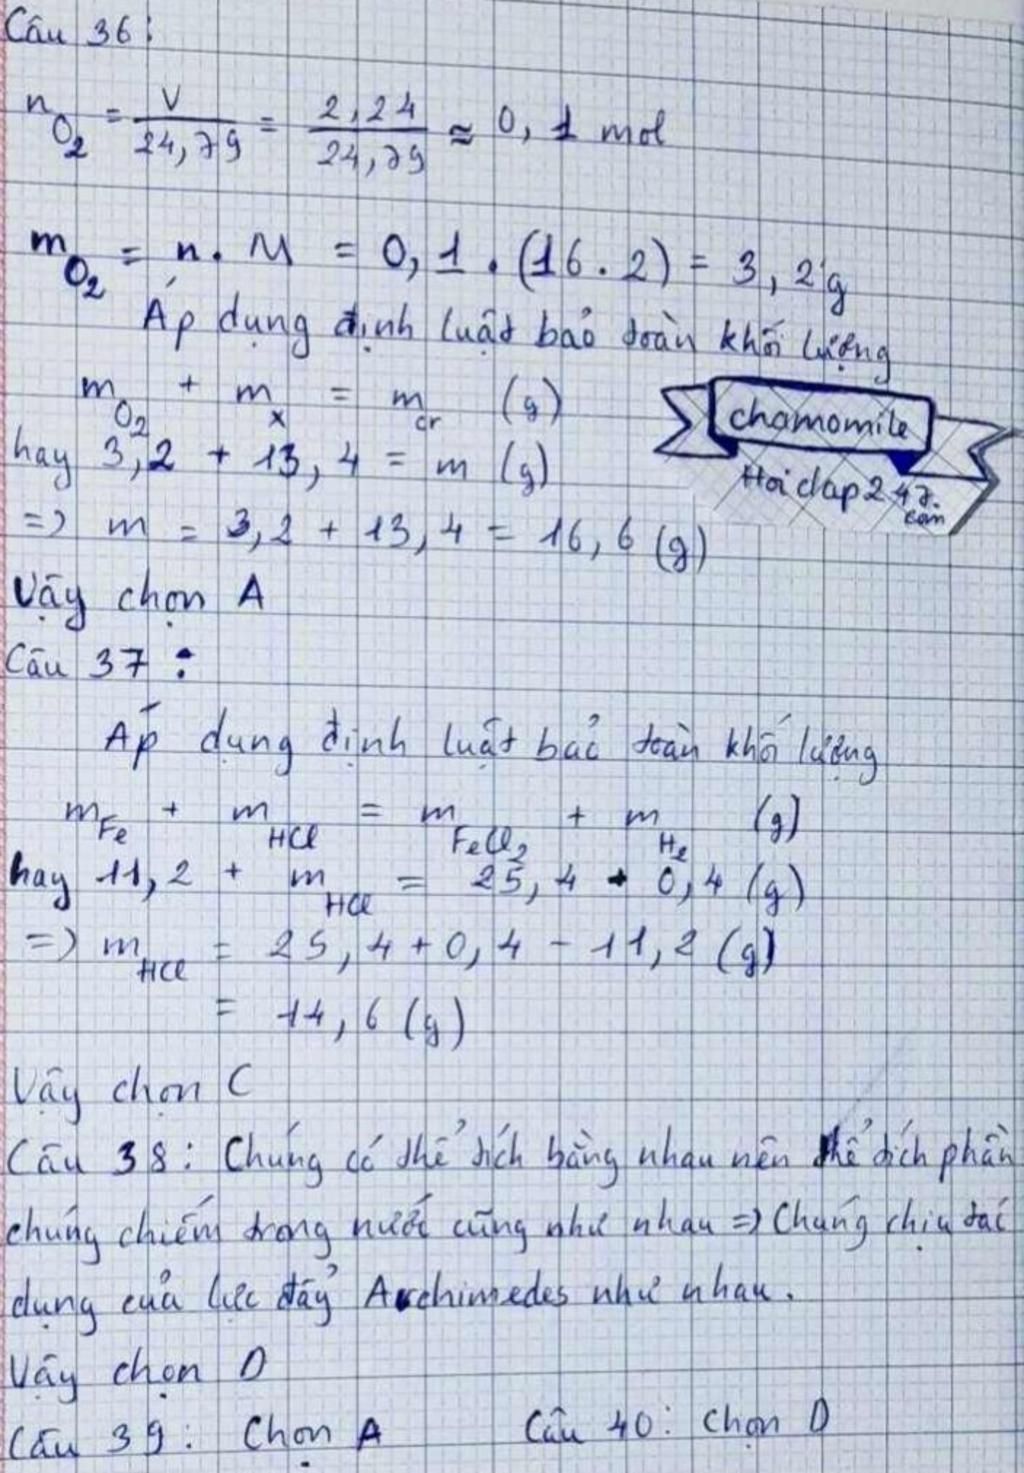 Câu 36:
n_O2 = V/24,79 = 2,24/24,79 ≈ 0,1 mol
m_O2 = n. M = 0,1 . (16.2) = 3,2 g
Áp dụng định luật bảo toàn khối lượng
m_O2 + m_x = m_cr (g)
hay 3,2 + 13,4 = m (g)
=> m = 3,2 + 13,4 = 16,6 (g)
chamomile
Hoidap247.com
Vậy chọn A
Câu 37:
Áp dụng định luật bảo toàn khối lượng
m_Fe + m_HCl = m_FeCl2 + m_H2 (g)
hay 11,2 + m_HCl = 25,4 + 0,4 (g)
=> m_HCl = 25,4 + 0,4 - 11,2 (g)
= 14,6 (g)
Vậy chọn C
Câu 38: Chúng có thể tích bằng nhau nên thể tích phần
chúng chiếm trong nước cũng như nhau => Chúng chịu tác
dụng của lực đẩy Archimedes như nhau.
Vậy chọn D
Câu 39: Chọn A Câu 40: Chọn D